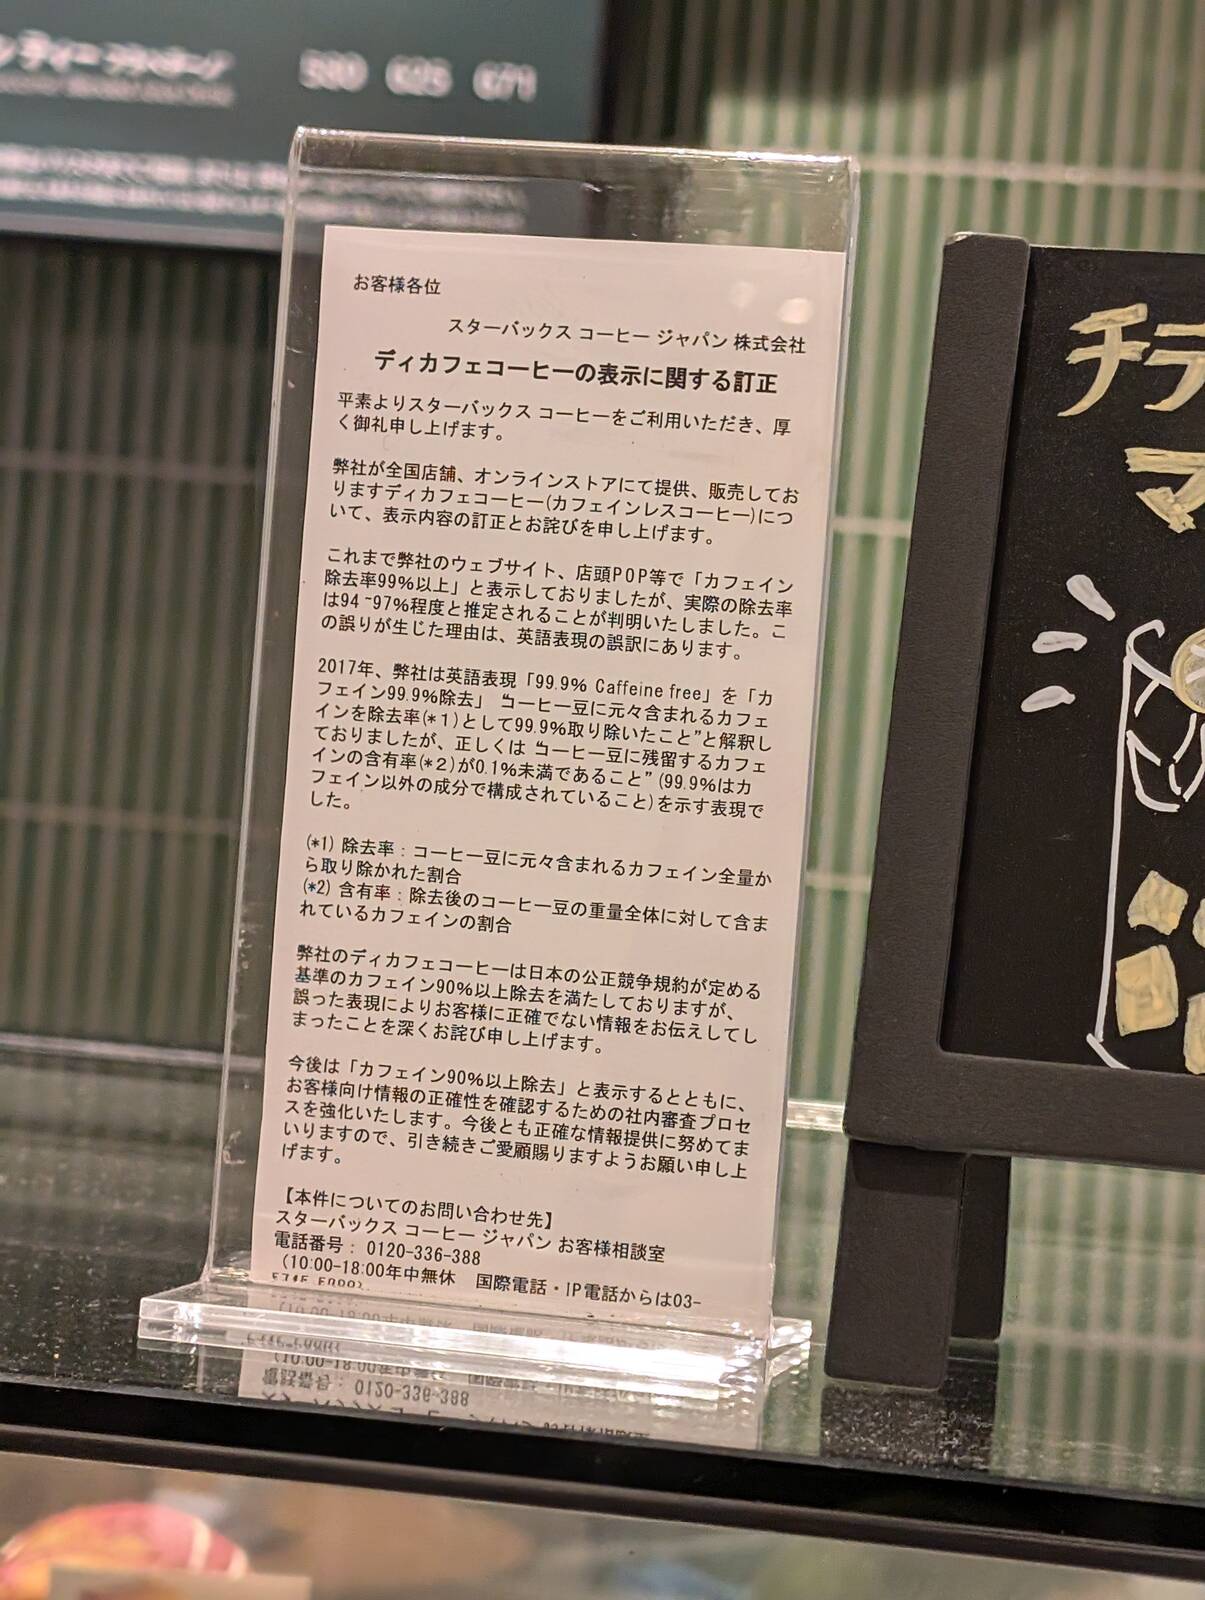 ン ティー フラペチーノ
580 625 671
お客様各位
スターバックス コーヒー ジャパン 株式会社
ディカフェコーヒーの表示に関する訂正
平素よりスターバックス コーヒーをご利用いただき、厚
く御礼申し上げます。
弊社が全国店舗、オンラインストアにて提供、販売してお
りますディカフェコーヒー(カフェインレスコーヒー)につ
いて、表示内容の訂正とお詫びを申し上げます。
これまで弊社のウェブサイト、店頭POP等で「カフェイン
除去率99%以上」と表示しておりましたが、実際の除去率
は94~97%程度と推定されることが判明いたしました。こ
の誤りが生じた理由は、英語表現の誤訳にあります。
2017年、弊社は英語表現「99.9% Caffeine free」を「カ
フェイン99.9%除去」“コーヒー豆に元々含まれるカフェ
インを除去率(*1)として99.9%取り除いたこと”と解釈し
ておりましたが、正しくは“コーヒー豆に残留するカフェ
インの含有率(*2)が0.1%未満であること”(99.9%はカ
フェイン以外の成分で構成されていること)を示す表現で
した。
(*1) 除去率：コーヒー豆に元々含まれるカフェイン全量か
ら取り除かれた割合
(*2) 含有率：除去後のコーヒー豆の重量全体に対して含ま
れているカフェインの割合
弊社のディカフェコーヒーは日本の公正競争規約が定める
基準のカフェイン90%以上除去を満たしておりますが、
誤った表現によりお客様に正確でない情報をお伝えしてし
まったことを深くお詫び申し上げます。
今後は「カフェイン90%以上除去」と表示するとともに、
お客様向け情報の正確性を確認するための社内審査プロセ
スを強化いたします。今後とも正確な情報提供に努めてま
いりますので、引き続きご愛顧賜りますようお願い申し上
げます。
【本件についてのお問い合わせ先】
スターバックス コーヒー ジャパン お客様相談室
電話番号：0120-336-388
(10:00-18:00年中無休 国際電話・IP電話からは03-
チデ
マ